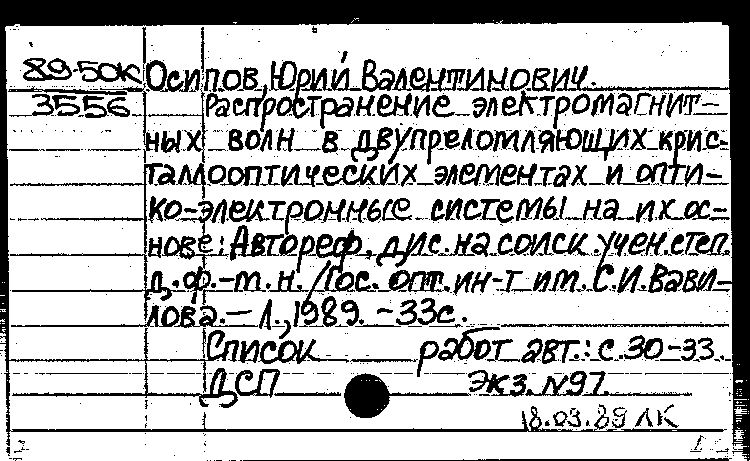 89-50К Осипов, Юрий Валентинович.
3556 Распространение электромагнит-
ных волн в двупреломляющих крис-
таллооптических элементах и опти-
ко-электронные системы на их ос-
нове: Автореф. дис. на соиск. учен. степ.
д. ф.-м. н. /Гос. опт. ин-т им. С.И. Вави-
лова. - Л., 1989. - 33с.
Список работ авт.: с. 30-33.
ДСП Экз. №97.
18.09.89 ЛК